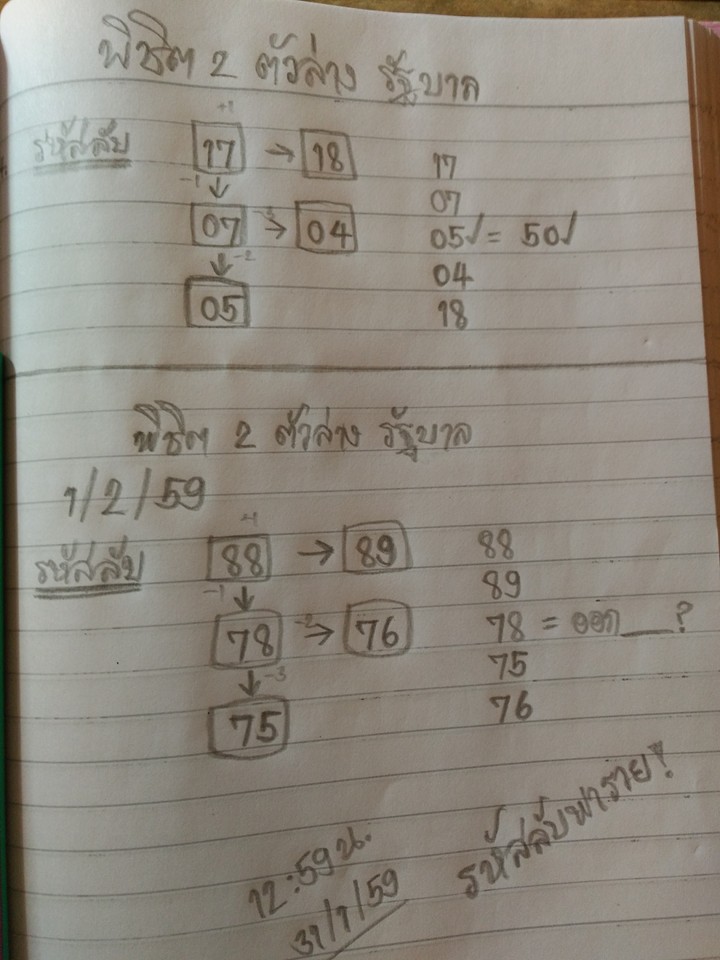 พิชิต 2 ตัวล่าง รัฐบาล
รหัสลับ
+1
17 → 18
-1 ↓
07 → 04
↓ -2
05
17
07
05✓ = 50✓
04
18
พิชิต 2 ตัวล่าง รัฐบาล
1/2/59
รหัสลับ
88 → 89
-1 ↓
78 → 76
-2
↓ -3
75
88
89
78 = ออก___?
75
76
12:59น.
31/1/59
รหัสลับพารวย!